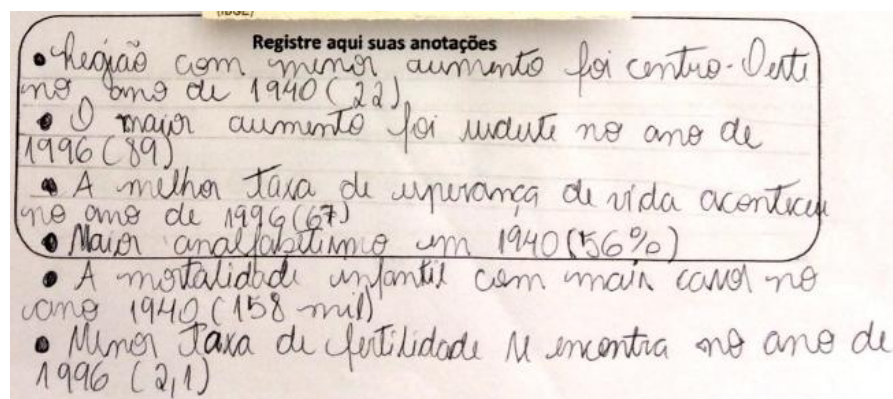 (IBGE)
Registre aqui suas anotações
• Região com menor aumento foi centro-Oeste
no ano de 1940 (22)
• O maior aumento foi sudeste no ano de
1996 (89)
• A melhor taxa de esperança de vida aconteceu
no ano de 1996 (67)
• Maior analfabetismo em 1940 (56%)
• A mortalidade infantil com mais casos no
ano 1940 (158 mil)
• Menor taxa de fertilidade se encontra no ano de
1996 (2,1)